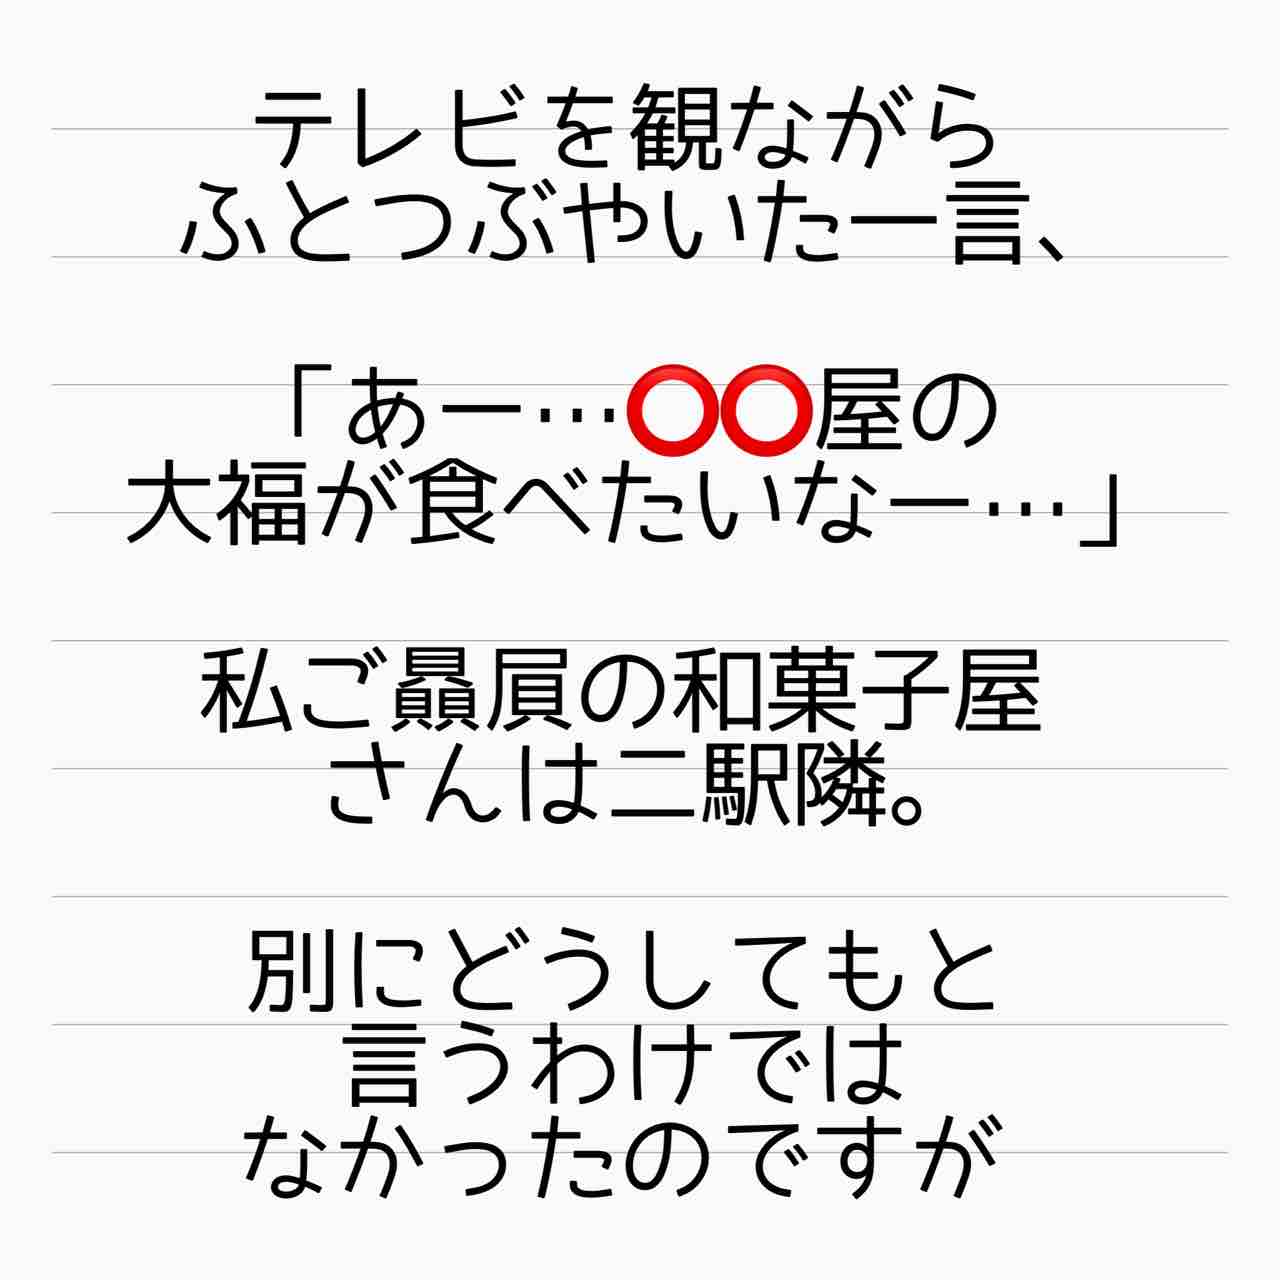 テレビを観ながら
ふとつぶやいた一言、
「あー…⭕⭕屋の
大福が食べたいなー…」
私ご贔屓の和菓子屋
さんは二駅隣。
別にどうしてもと
言うわけでは
なかったのですが